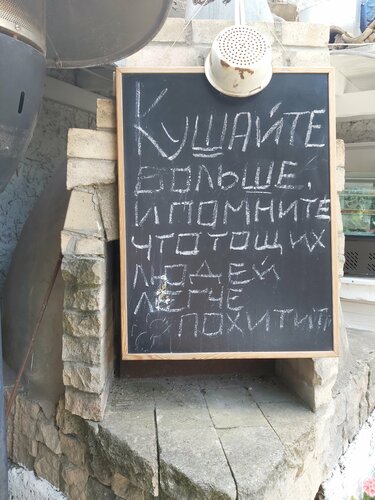 Кушайте
больше,
и помните
что тощих
людей
легче
похитить